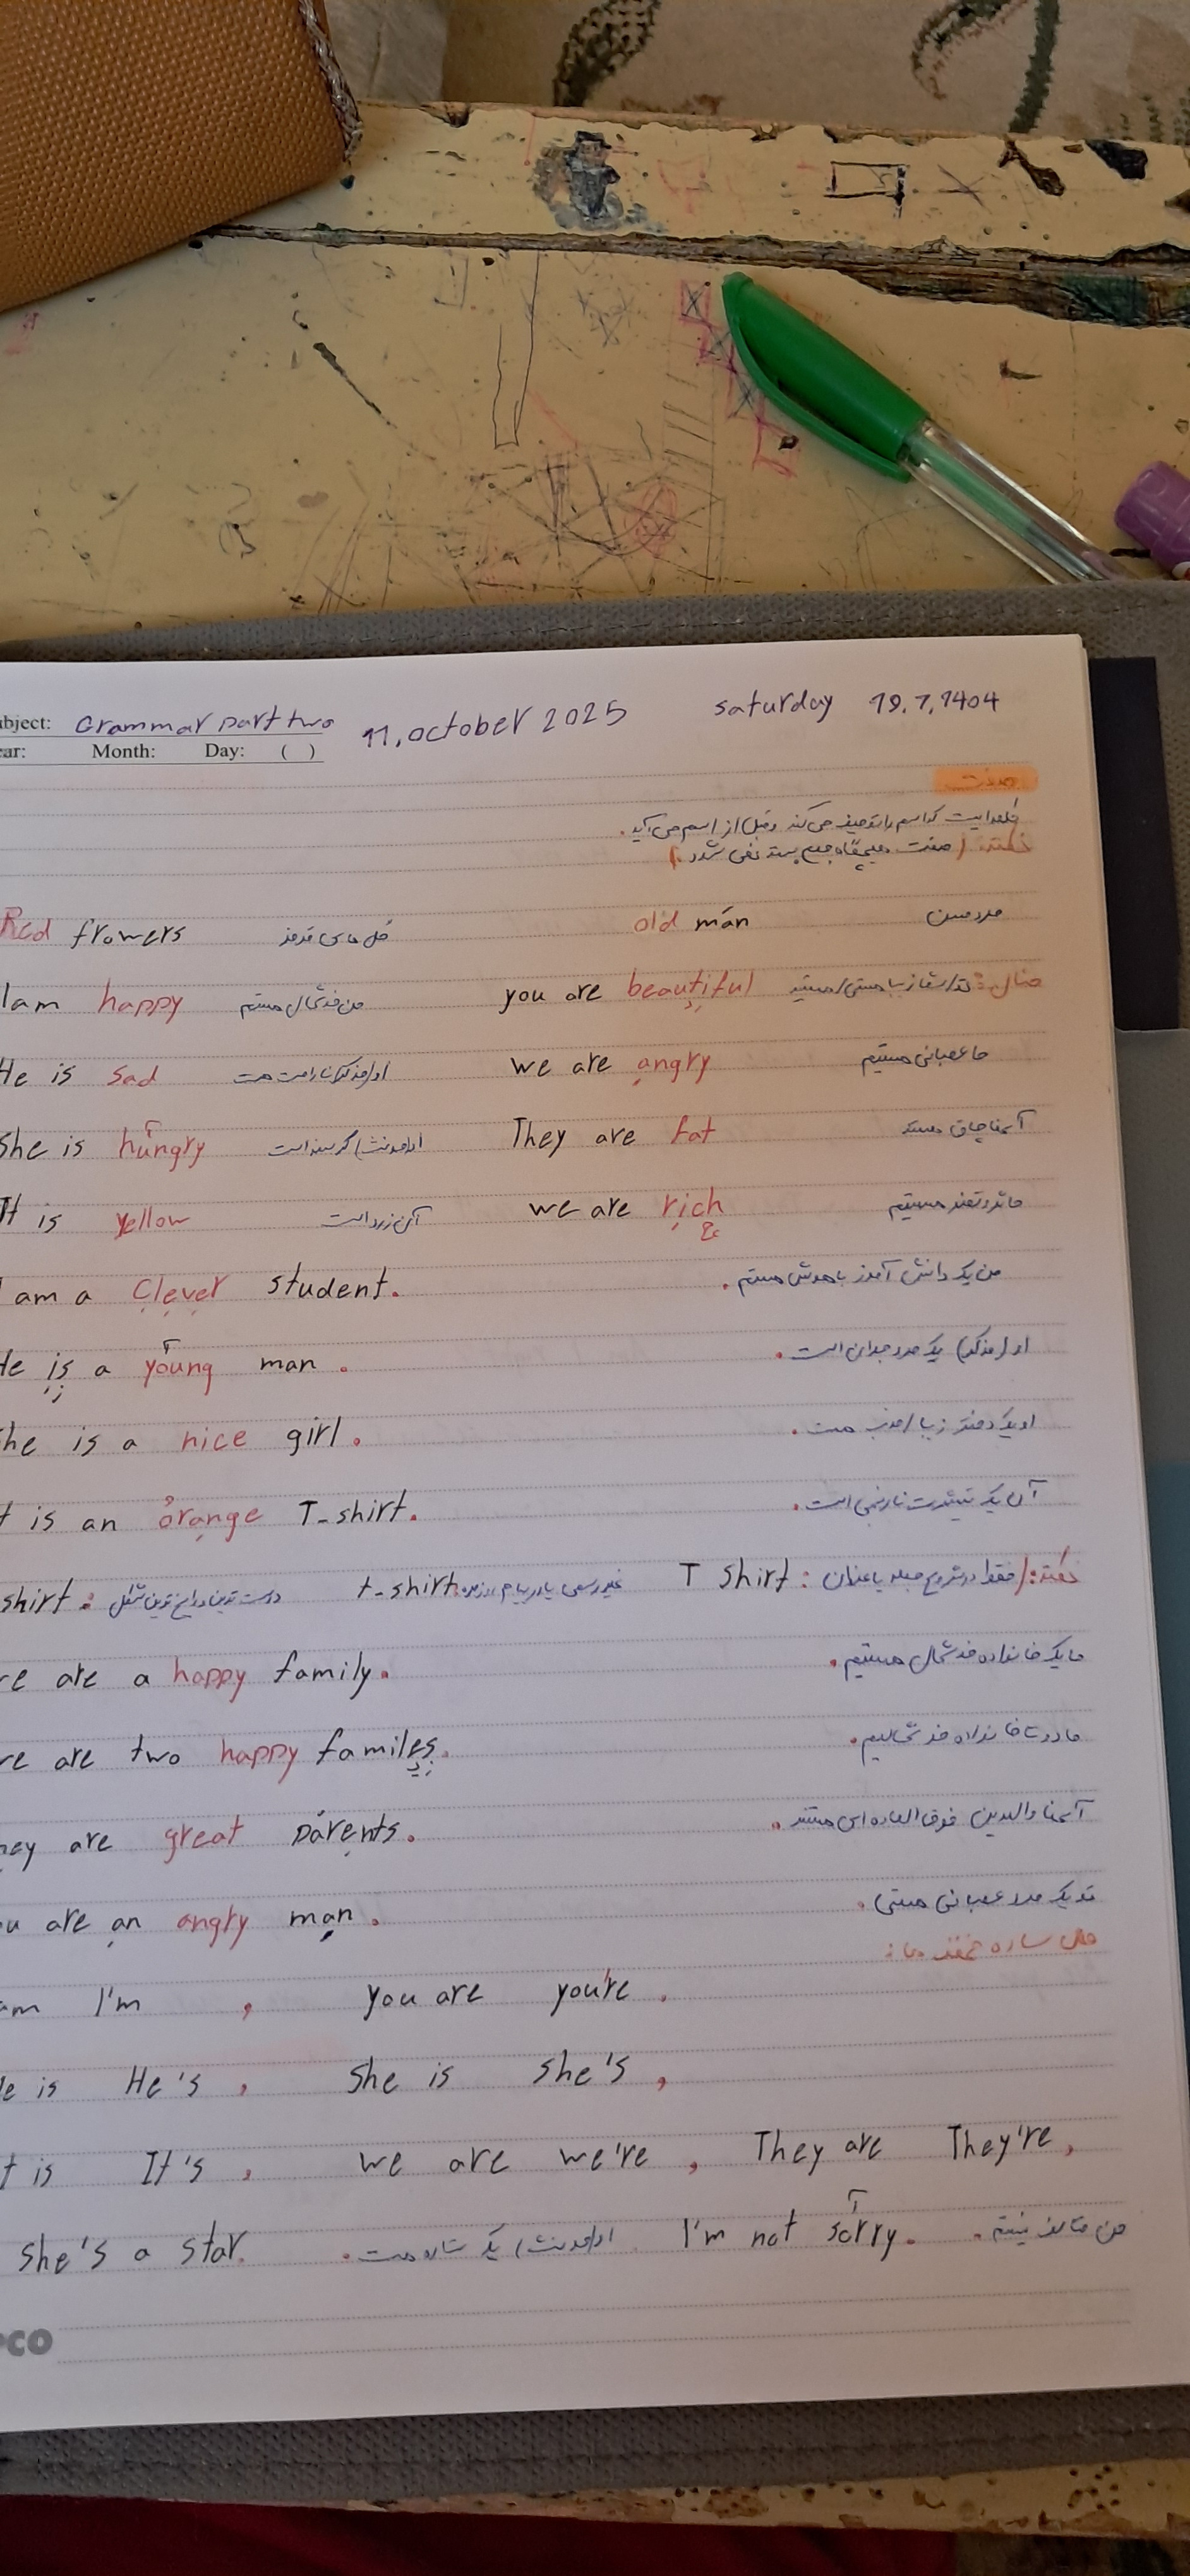 bject: Grammar part two 11. october 2025 saturday 19.7.1404
ear: Month: Day: ( )
صفت
کلمه‌ایست که اسم را توصیف می‌کند و قبل از اسم می‌آید.
نکته: (صفت هیچگاه جمع بسته نمی شود.)
Red frowers گل های قرمز old man مرد مسن
I am happy من خوشحال هستم you are beautiful مثال: تو/شما زیبا هستی/هستید
He is sad او(مذکر) ناراحت هست we are angry ما عصبانی هستیم
she is hungry او(مونث) گرسنه است They are fat آنها چاق هستند
It is yellow آن زرد است we are rich ما ثروتمند هستیم
چ
am a clever student. من یک دانش آموز باهوش هستم.
He is a young man. او (مذکر) یک مرد جوان است.
he is a nice girl. او یک دختر زیبا/خوب هست.
t is an orange T-shirt. آن یک تیشرت نارنجی است.
shirt: درست ترین و رایج ترین شکل t-shirt: غیر رسمی یا در پیام روزمره T shirt: نکته:/فقط در شروع جمله یا عنوان
re are a happy family. ما یک خانواده خوشحال هستیم.
re are two happy familes. ما دو تا خانواده خوشحالیم.
hey are great parents. آنها والدین فوق العاده ای هستند.
ou are an angry man. تو یک مرد عصبانی هستی.
حال ساده مخفف ها:
am I'm , you are you're.
He is He's , she is she's,
t is It's , we are we're , They are They're,
she's a star. او(مونث) یک ستاره هست. I'm not sorry. من متاسف نیستم.
co